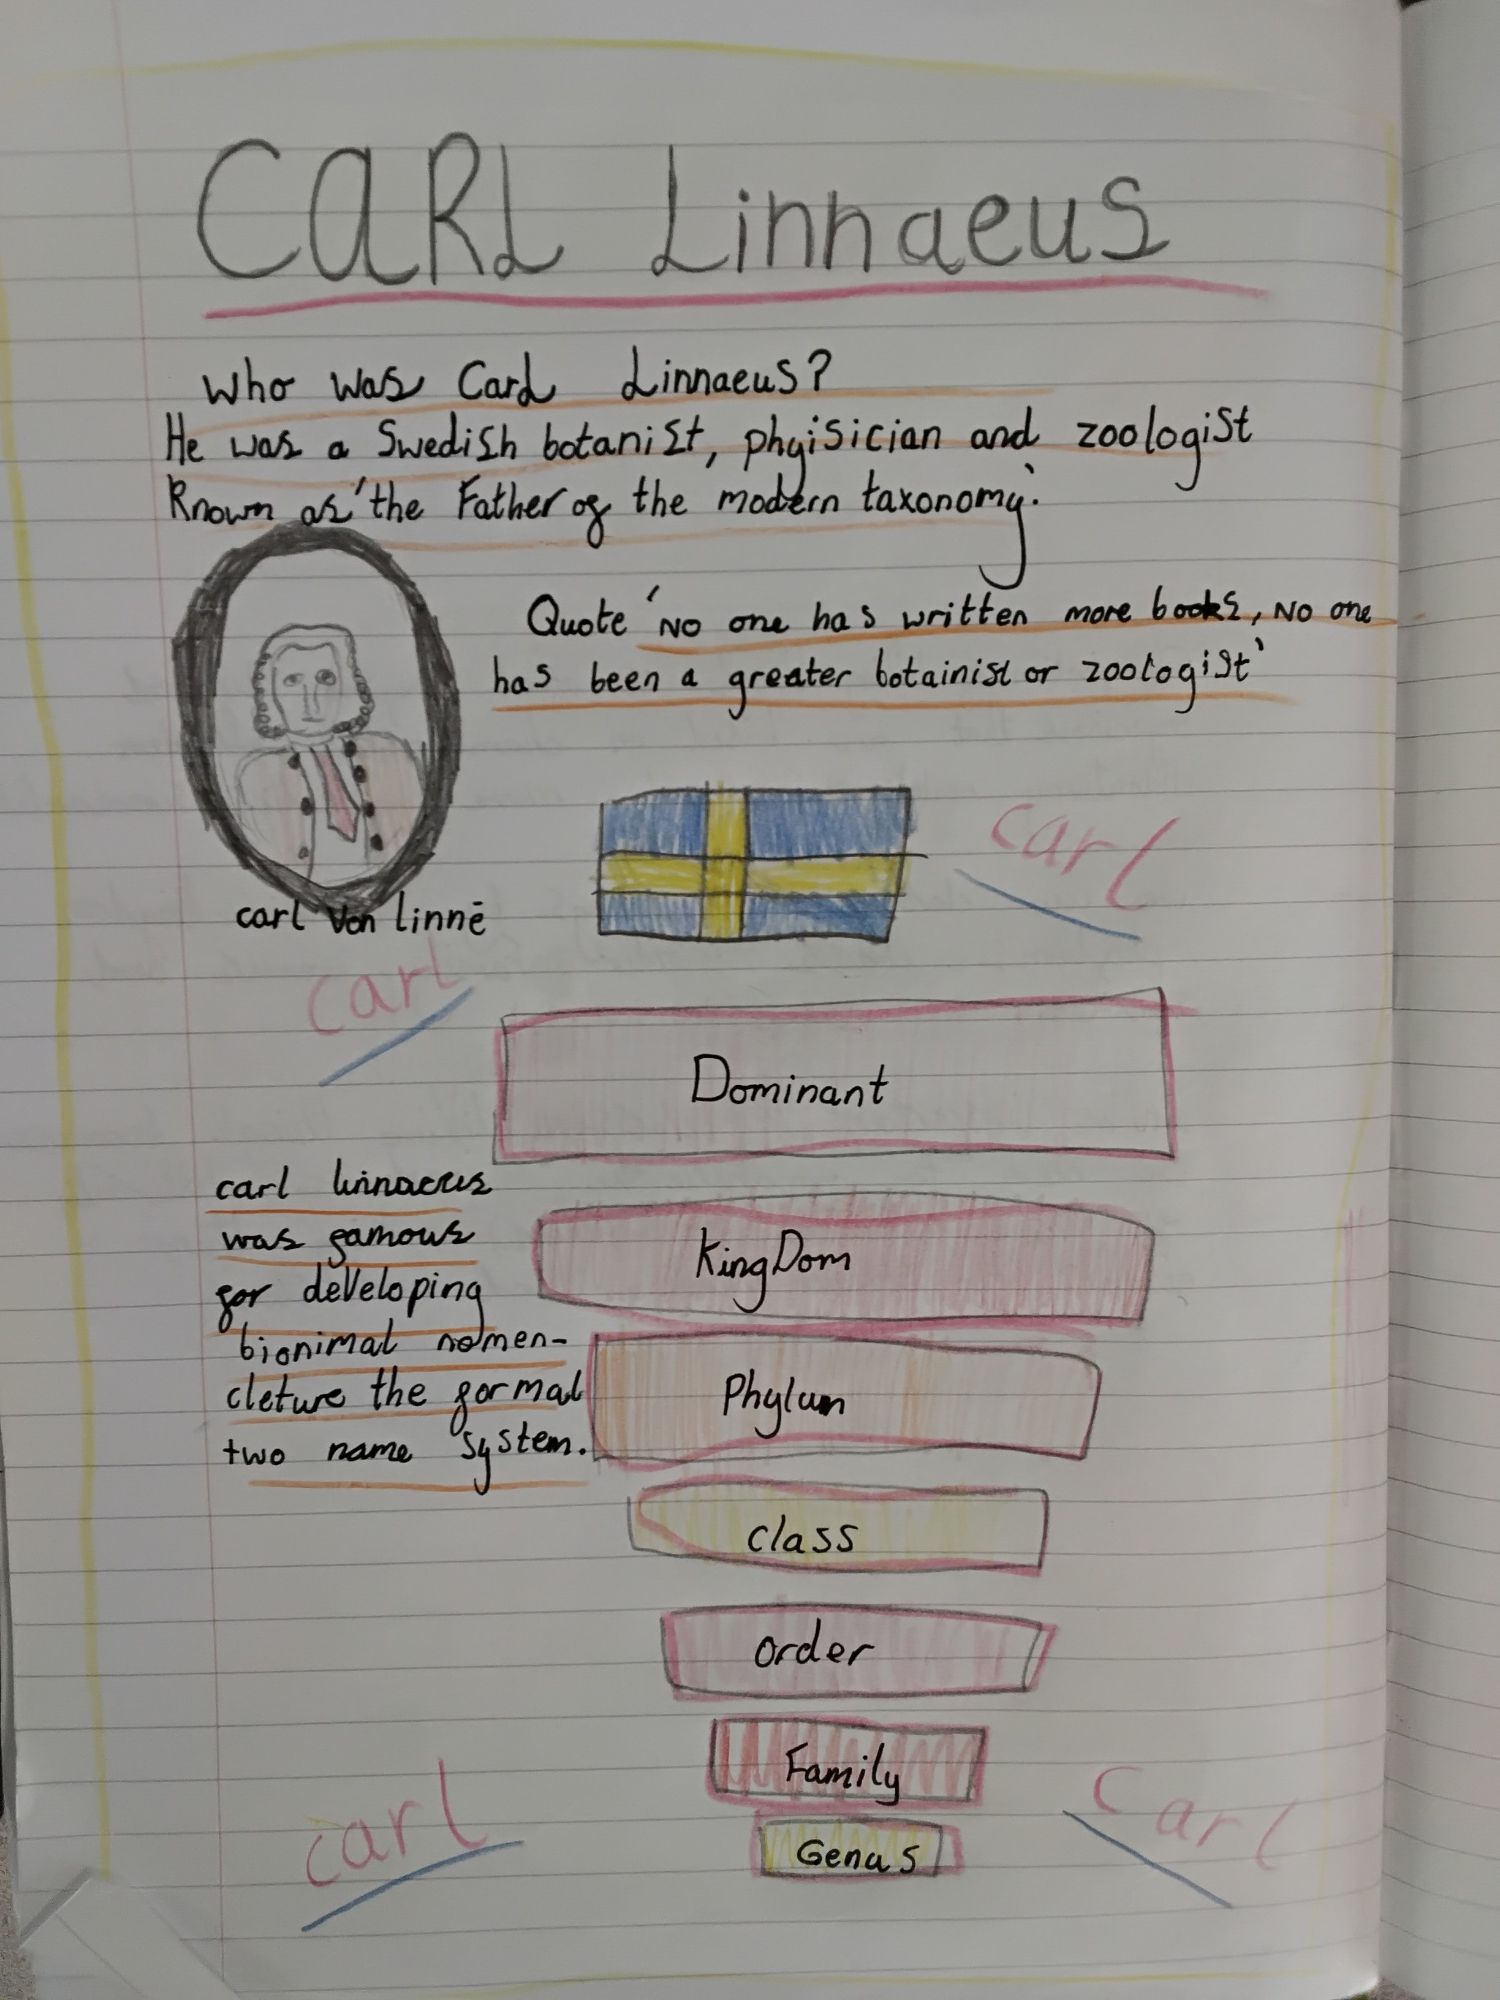 CARL Linnaeus
Who was Carl Linnaeus?
He was a Swedish botanist, phyisician and zoologist
Known as 'the Father of the modern taxonomy'.
Quote 'No one has written more books, No one
has been a greater botainist or zoologist'
carl
carl Von linnē
carl
Dominant
carl linnaeus
was famous
for developing
bionimal nomen-
cleture the formal
two name system.
KingDom
Phylum
class
order
Family
Genus
carl
carl